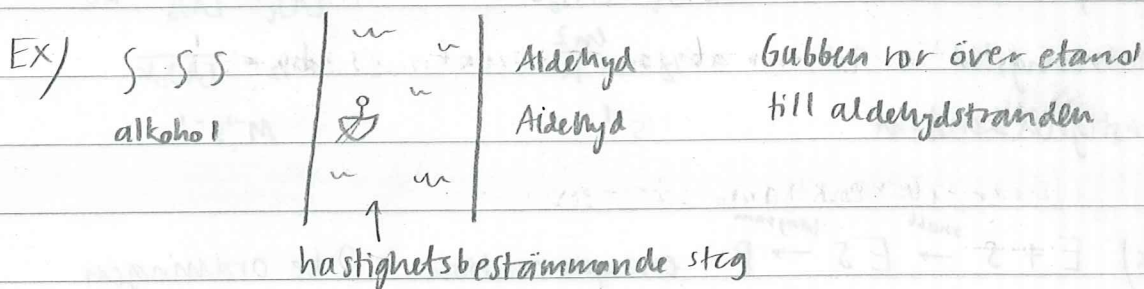 Ex) S S S
alkohol
Aldehyd
Aldehyd
Gubben ror över etanol
till aldehydstranden
hastighetsbestämmande steg